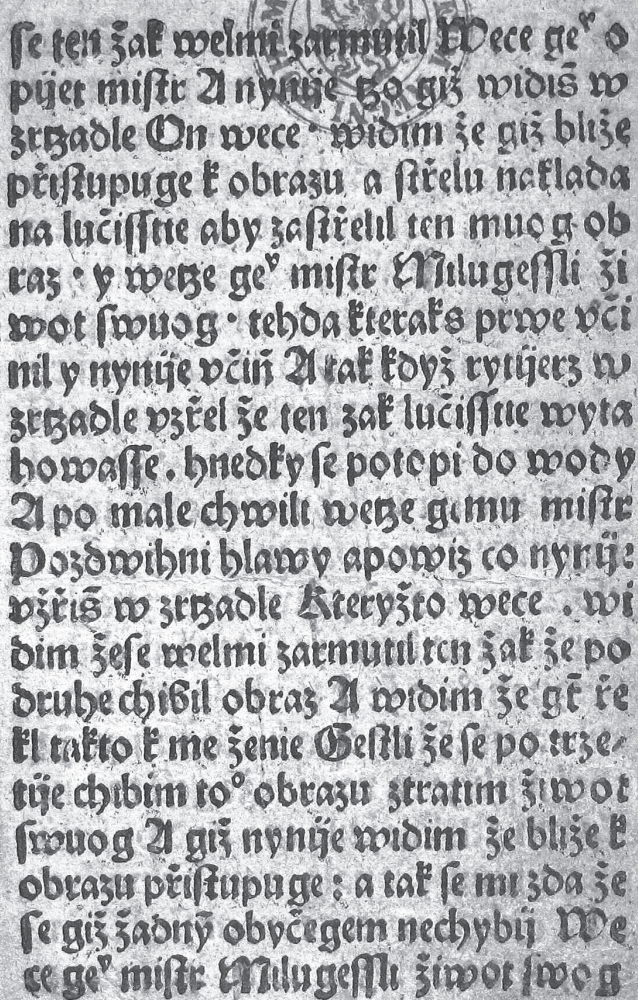 se ten žak welmi zarmutil Wece geͮ o
pijet mistr A nynije tzo giž widiš w
zrtzadle On wece · widim že giž bliže
přistupuge k obrazu a střelu naklada
na lučisstie aby zastřelil ten muog ob
raz · y wetze geͮ mistr Milugessli ži
wot swuog · tehda kteraks prwe vči
nil y nynije včiň A tak když rytijerz w
zrtzadle vzřel že ten zak lučisstie wyta
howasse . hnedky se potopi do wody
A po male chwili wetze gemu mistr
Pozdwihni hlawy apowiz co nynij:
vžřiš w zrtzadle Kteryžto wece . wi
dim žese welmi zarmutil ten žak že po
druhe chibil obraz A widim že gt̄ ře
kl takto k me ženie Gestli že se po trze⸗
tije chibim to° obrazu ztratim žiwot
swuog A giž nynije widim že bliže k
obrazu přistupuge : a tak se mi zda že
se giž žadnẏ obyčegem nechybij We
ce geͮ mistr Milugessli žiwot swog